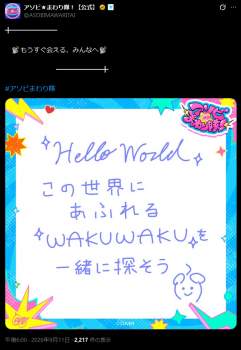 アソビ★まわり隊!【公式】
@ASOBIMAWARITAI
もうすぐ会える、みんなへ
#アソビまわり隊
アソビ★まわり隊!
Hello World
この世界に
あふれる
WAKUWAKUを
一緒に探そう
©COVER
午後6:00 · 2026年9月11日 · 2,217 件の表示